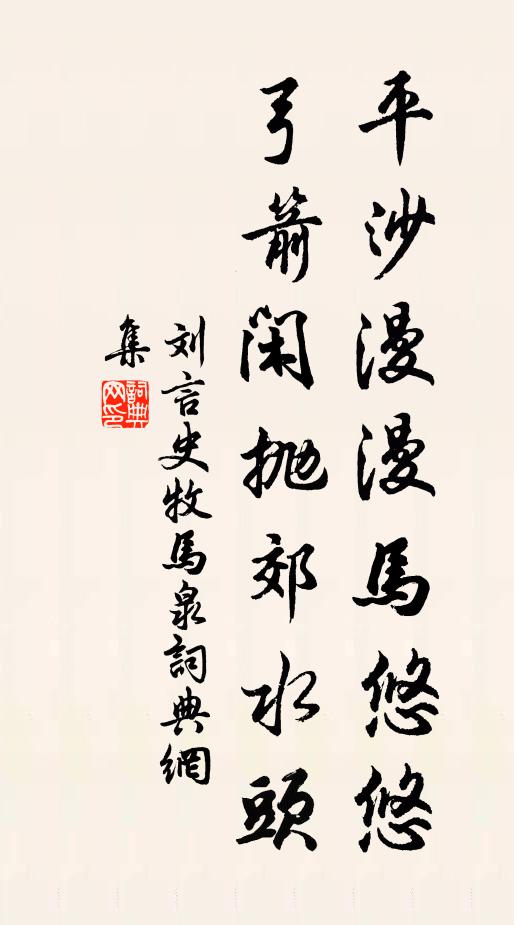 平沙漫漫馬悠悠
弓箭閑抛郊水頭
刘言史牧馬泉詞典網
集
詞典
网印